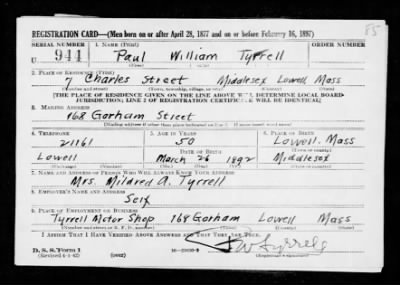 REGISTRATION CARD—(Men born on or after April 28, 1877 and on or before February 16, 1897)
SERIAL NUMBER 1. NAME (Print) ORDER NUMBER
U 944 Paul William Tyrrell
2. PLACE OF RESIDENCE (Print)
7 Charles Street Middlesex Lowell Mass
[THE PLACE OF RESIDENCE GIVEN ON THE LINE ABOVE WILL DETERMINE LOCAL BOARD
JURISDICTION; LINE 2 OF REGISTRATION CERTIFICATE WILL BE IDENTICAL]
3. MAILING ADDRESS
168 Gorham Street
[Mailing address if other than place indicated on line 2. If same insert word same]
4. TELEPHONE 5. AGE IN YEARS 6. PLACE OF BIRTH
21161 50 Lowell, Mass
DATE OF BIRTH
Lowell March 26 1892 Middlesex
7. NAME AND ADDRESS OF PERSON WHO WILL ALWAYS KNOW YOUR ADDRESS
Mrs. Mildred A. Tyrrell
8. EMPLOYER'S NAME AND ADDRESS
Self
9. PLACE OF EMPLOYMENT OR BUSINESS
Tyrrell Motor Shop 168 Gorham Lowell Mass
I AFFIRM THAT I HAVE VERIFIED ABOVE ANSWERS AND THAT THEY ARE TRUE.
D. S. S. Form 1
(Revised 4-1-42) (over)
P W Tyrrell